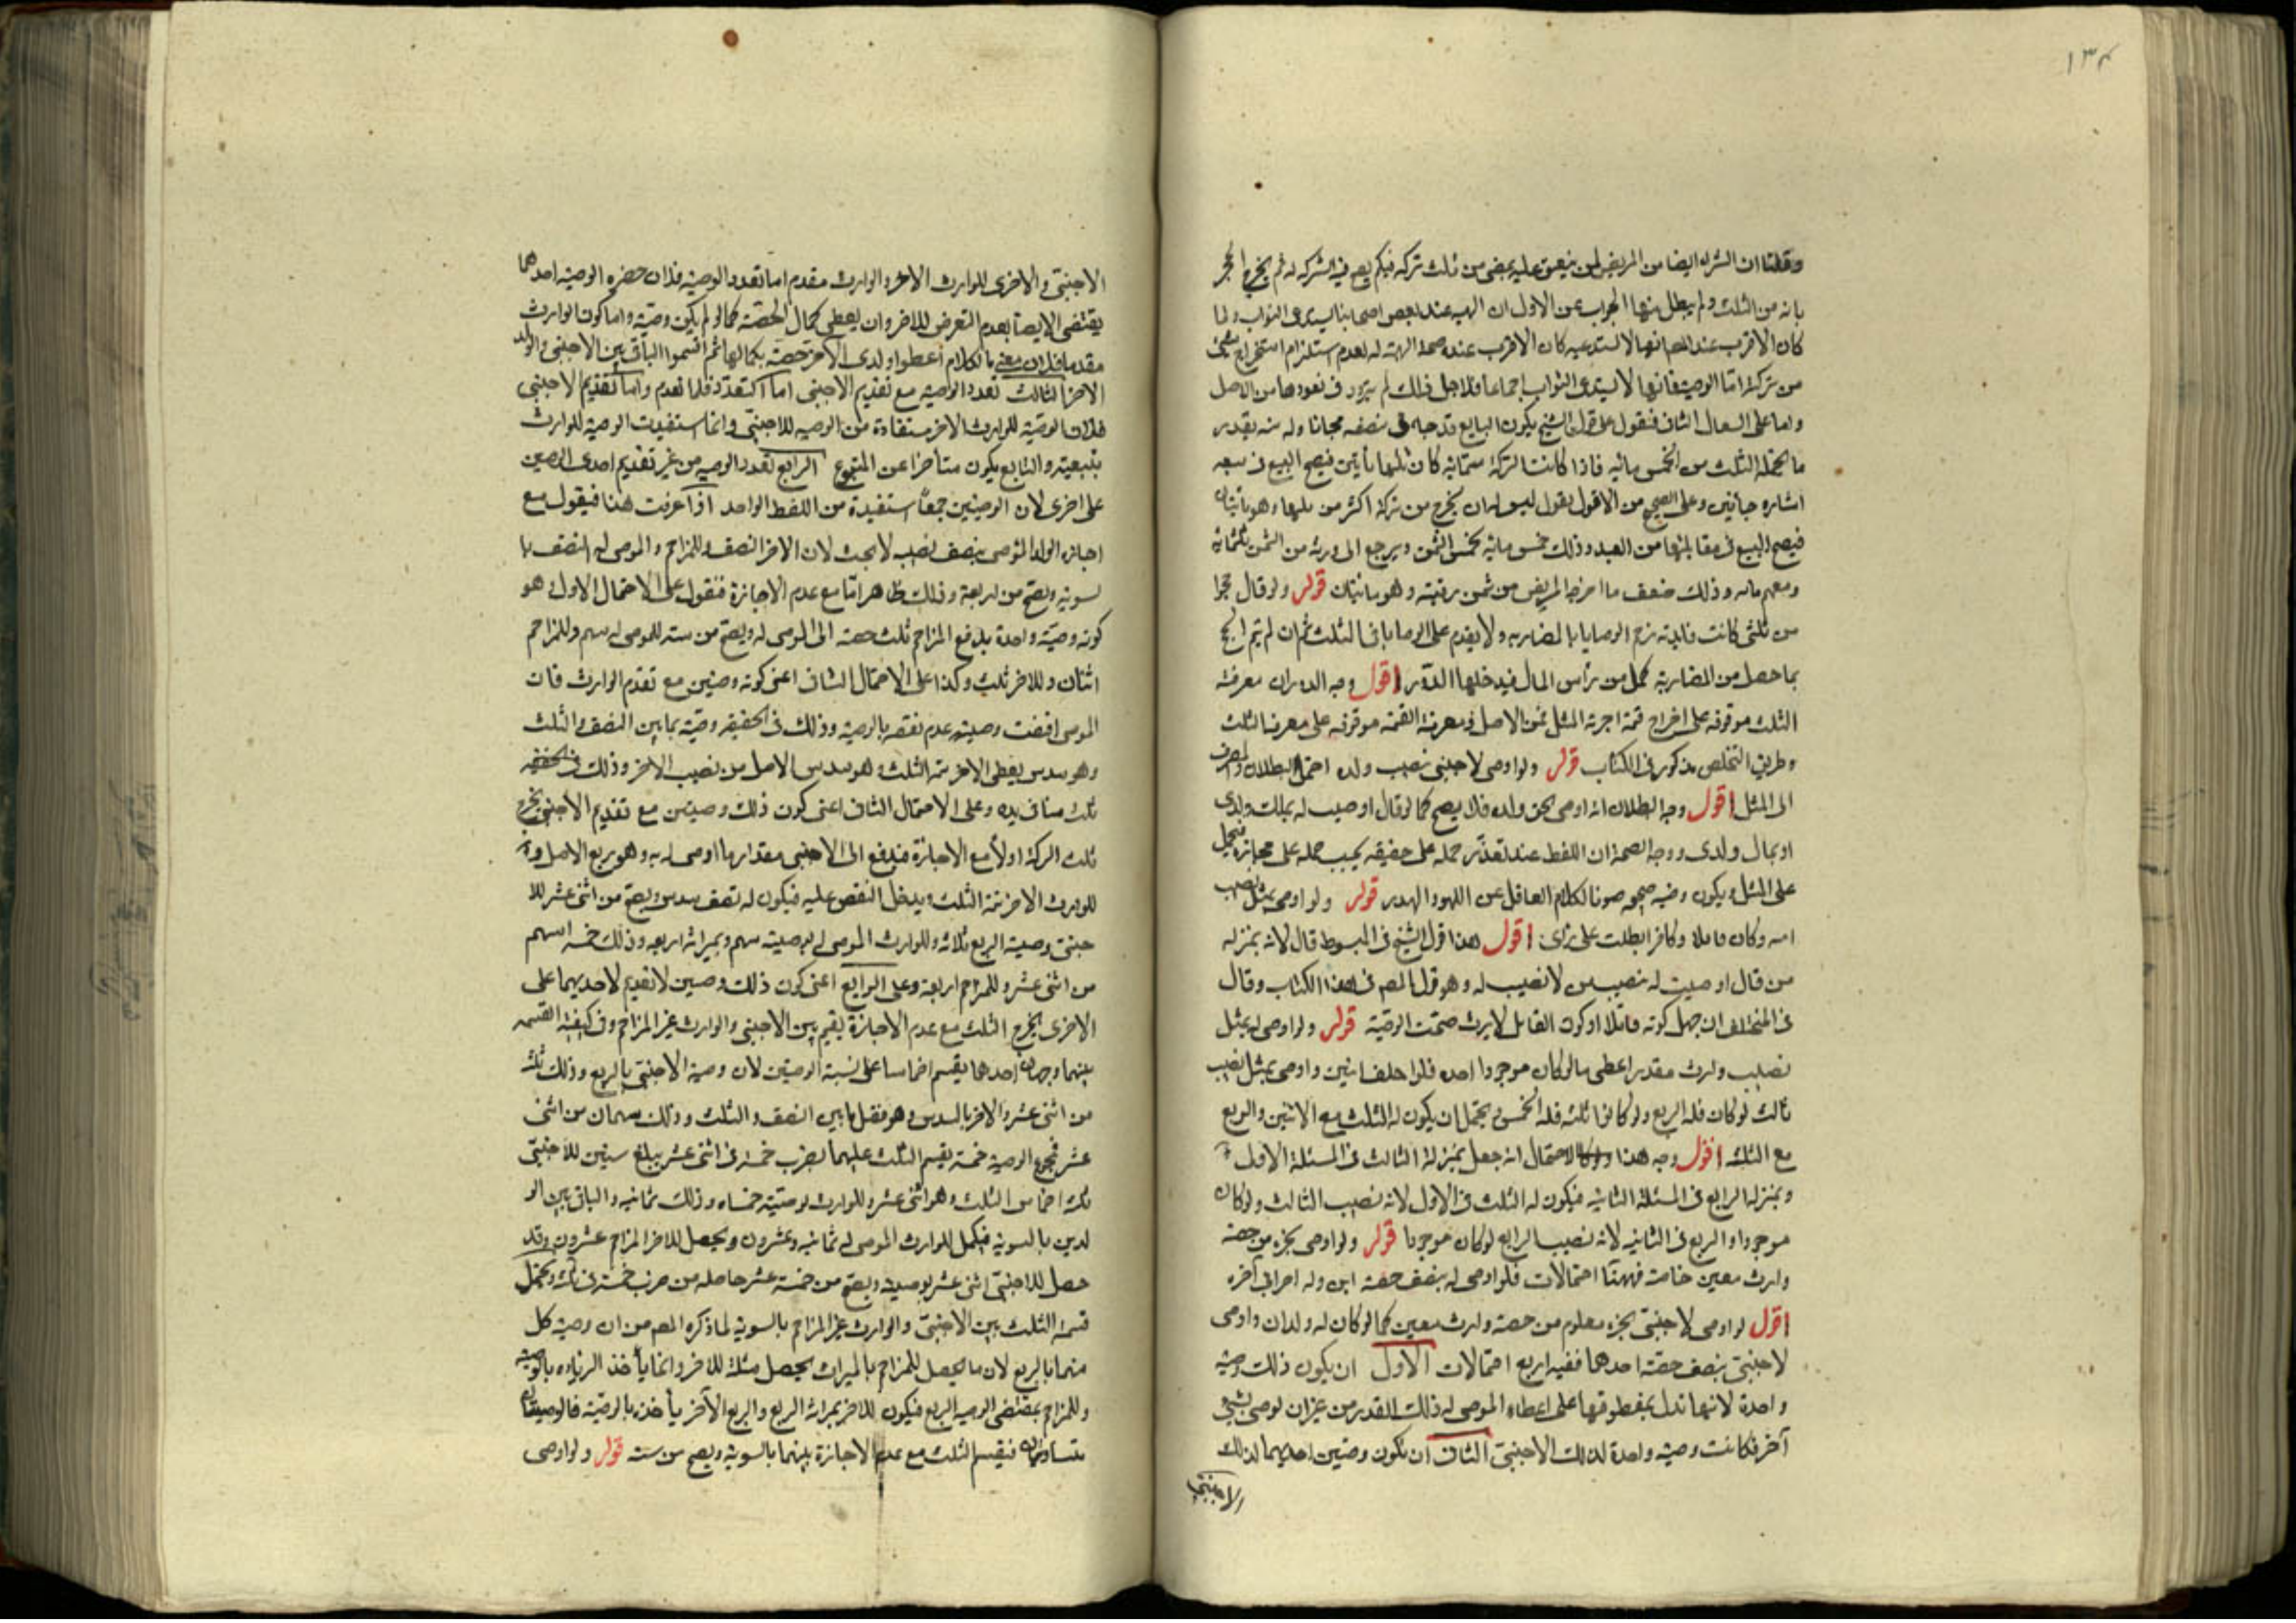 ١٣٤
وقلنا ان الشراء ايضا من المريض لمن ينعتق عليه يمضي من ثلث تركه فيكم يصح فيه الشركه له ثم يخرج الحجر
بانه من الثلث ولم يبطل منها الجواب عن الاول ان الهبه عند بعض اصحابنا يستدعى الثواب ولما
كان الاقرب عند المص انها لا تستدعيه كان الاقرب عنده صحة الهبة له لعدم استلزام استخراج شئ
من تركة اما الوصية فانها لا يستدعى الثواب اجماعا فلاجل ذلك لم يتردد فى نفوذها من الاصل
واما على السؤال الثانى فنقول على قول الشيخ يكون البايع قد حاباه فى نصفه مجانا وله منه بقدر
ما يحتمله الثلث من الخمس مائه فاذا كانت التركة ستمائة كان ثلثها مأتين فيصح البيع فى سبعه
اعشاره بمأتين وعلى الصحيح من الاقول يقول ليس له ان يخرج من تركة اكثر من ثلثها وهو مأتيتان
فيصح البيع فى مقابلتها من العبد وذلك خمس مائة بخمس الثمن ويرجع الى ورثة من الثمن ثلثمائة
ومعهم مائه وذلك ضعف ما اخرجه المريض من ثمن رقبته وهو مائتان قوله ولو قال حجوا
من ثلثى كانت فايدته زحم الوصايا بالمضاربه ولا يقدم على الوصايا فى الثلث ثم ان لم يتم الحج
بما حصل من المضاربة كمل من رأس المال فيدخلها الدور اقول وجه الدوران معرفة
الثلث موقوفه على اخراج تتمة اجرة المثل من الاصل ومعرفة التتمة موقوفه على معرفة الثلث
وطريق التخلص مذكور فى الكتاب قوله ولو اوصى لاجنبى بنصيب ولده احتمل البطلان والصرف
الى المثل اقول وجه البطلان انه اوصى بحق ولده فلا يصح كما لو قال اوصيت له بملك ولدى
او بمال ولدى ووجه الصحة ان اللفظ عند تعذر حمله على حقيقه يجب حمله على مجازه فيحمل
على المثل ويكون وصية صحيحه صونا لكلام العاقل عن اللهو والهدر قوله ولو اوصى بمثل نصيب
ابنه وكان قاتلا وكافرا بطلت على رأى اقول هذا قول الشيخ فى المبسوط قال لانه بمنزله
من قال اوصيت له بنصيب من لا نصيب له وهو قول المص فى هذا الكتاب وقال
فى المختلف ان جهل كونه قاتلا او كون القاتل لا يرث صحت الوصية قوله ولو اوصى له بمثل
نصيب وارث مقدر اعطى مالو كان موجودا اخذه فلو خلف ابنين واوصى بمثل نصيب
ثالث لو كان فله الربع ولو كانوا ثلثه فله الخمس ويحتمل ان يكون له الثلث مع الاثنين والربع
مع الثلثه اقول وجه هذا الاحتمال انه جعل بمنزلة الثالث فى المسئلة الاولى
وبمنزلة الرابع فى المسئلة الثانيه فيكون له الثلث فى الاول لانه نصيب الثالث ولو كان
موجودا والربع فى الثانيه لانه نصيب الرابع لو كان موجودا قوله ولو اوصى بجزء من حصة
وارث معين خاصة فههنا احتمالات فلو اوصى له بنصف حصة ابن وله اخر الى آخره
اقول لو اوصى لاجنبى بجزء معلوم من حصة وارث معين كما لو كان له ولدان واوصى
لاجنبى بنصف حصة احدهما ففيه اربع احتمالات الاول ان يكون ذلك وصية
واحدة لانها تدل بمنطوقها على اعطاء الموصى له ذلك القدر من غير ان يوصى بشئ
آخر فكانت وصية واحدة لذلك الاجنبى الثانى ان تكون وصيتين احديهما لذلك
الاجنبى
الاجنبى والاخرى للوارث الاخر والوارث مقدم اما تعدد الوصية فلان حضره الوصيه احدهما
يقتضى الايصآ بعدم التعرض للاخر وان يعطى كمال الحصة كما لو لم يكن وصية واما كون الوارث
مقدما فلان معنى الكلام اعطوا ولدى الاخر حصة بكمالها ثم اقسموا الباقى بين الاجنبى والولد
الاخر الثالث تعدد الوصية مع تقديم الاجنبى اما التعدد فلما تقدم واما تقديم الاجنبى
فلان الوصية للوارث الاخر مستفادة من الوصيه للاجنبى وانما استفيدت الوصية للوارث
بتبعيته والتابع يكون متأخرا عن المتبوع الرابع تعدد الوصيه من غير تقديم احدى الوصيتين
على اخرى لان الوصيتين جمعا استفيدة من اللفظ الواحد اذا عرفت هذا فيقول مع
اجازه الولد الموصى بنصف نصيبه لا بحث لان الاخر النصف وللمزاحم والموصى له النصف با
لسوية ويصح من اربعة وذلك ظاهر اما مع عدم الاجازة فنقول على الاحتمال الاول هو
كونه وصية واحدة يدفع المزاحم ثلث حصته الى الموصى له ويصح من سته للموصى له سهم وللمزاحم
اثنان وللاخر ثلث وكذا على الاحتمال الثانى اعنى كونه وصيتين مع تقدم الوارث فان
الموصى اقتضت وصيته عدم نقصه بالوصية وذلك فى الحقيقه وصية بما بين النصف والثلث
وهو سدس يعطى الاخر تتمه الثلث وهو سدس الاصل من نصيب الاخر وذلك فى الحقيقه
ثلث ما فى يده وعلى الاحتمال الثالث اعنى كون ذلك وصيتين مع تقديم الاجنبى يخرج
ثلث التركة اولا مع الاجازة فيدفع الى الاجنبى مقدار ما اوصى له به وهو ربع الاصل و
للوارث الاخر تتمة الثلث ويدخل النقص عليه فيكون له نصف سدس ويصح من اثنى عشر للا
جنبى وصية الربع ثلاثه وللوارث الموصى له بوصيته سهم وبميراثه اربعه وذلك خمسه اسهم
من اثنى عشر وللمزاحم اربعة وعلى الرابع اعنى كون ذلك وصيتين لا تقديم لاحديهما على
الاخرى يخرج الثلث مع عدم الاجازة يقسم بين الاجنبى والوارث غير المزاحم وفى كيفية القسمه
بينهما وجهان احدهما يقسم اخماسا على نسبة الوصيتين لان وصية الاجنبى بالربع وذلك ثلثه
من اثنى عشر والاخر بالسدس وهو فضل ما بين النصف والثلث وذلك سهمان من اثنى
عشر فمجموع الوصية خمسة يقسم الثلث عليهما يضرب خمسة فى اثنى عشر يبلغ ستين للاجنبى
ثلثه اخماس الثلث وهو اثنى عشر وللوارث لوصيته خمساه وذلك ثمانيه والباقى بين الو
لدين بالسوية فيكمل للوارث الموصى له ثمانيه وعشرون ويحصل للاخر المزاحم عشرون وقد
حصل للاجنبى اثنى عشر بوصية ويصح من خمسة عشر حاصله من ضرب خمسة فى ثلثه ويحتمل
قسمة الثلث بين الاجنبى والوارث غير المزاحم بالسوية لما ذكره المص من ان وصية كل
منهما بالربع لان ما يحصل للمزاحم بالميراث يحصل مثله للاخر وانما يأخذ الزياده بالوصية
وللمزاحم بمقتضى الوصيه الربع فيكون للاخر بميراثه الربع والربع الآخر يأخذه بالوصية فالوصيتان
متساويتان فيقسم الثلث مع عدم الاجازة بينهما بالسوية ويصح من ستة قوله ولو اوصى